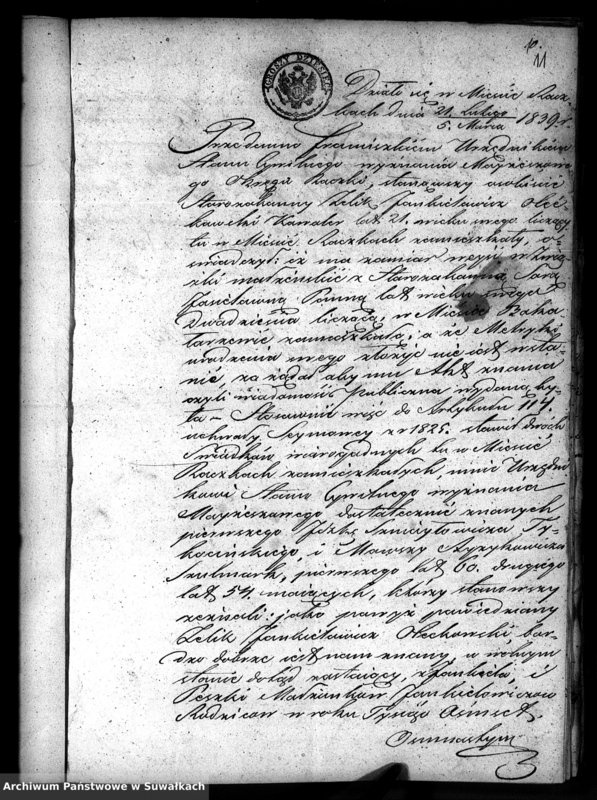 10.
11
GROSZY DZIESIĘĆ
Działo się w Mieście Racz-
kach dnia 21. Lutego / 5. Marca 1839 r.
Przedemną Franciszkiem Urzędnikiem
Stanu Cywilnego wyznania Mojżeszowe-
go Okręgu Raczki, stanąwszy osobiście
Starozakonny Zelik Jankielowicz Ole-
Kawaler lat 21. wieku swego liczący
tu w Mieście Raczkach zamieszkały, o-
świadczył: iż ma zamiar wejść w zwią-
zki małżeńskie z Starozakonną Sarą
Panną lat wieku swego
Dwadzieścia liczącą, w Mieście Baka-
łarzewie zamieszkałą; a że Metryki
urodzenia swego złożyć nie jest w sta-
nie, żądał aby mu Akt znania
czyli wiadomość publiczna wydaną by-
ła – Stosownie więc do Artykułu 114.
uchwały Seymowey z r 1825. stawił dwóch
Świadków wiarogodnych tu w Mieście
Raczkach zamieszkałych, mnie Urzędni-
kowi Stanu Cywilnego wyznania
Mojżeszowego dostatecznie znanych
pierwszego Ty-
kocińskiego, i
Szulmark, pierwszego lat 60. drugiego
lat 54. mających, którzy stanąwszy
zeznali: jako powyż powiedziany
Zelik Jankielowicz Olechowski, bar-
dzo dobrze jest nam znany, w wolnym
stanie dotąd zostający, z Jankiela, i
Peszki Małżonków Jankielowiczów
Rodziców w roku Tysiąc Ośmset
Ośmnastym
Archiwum Państwowe w Suwałkach